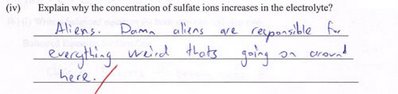 (iv) Explain why the concentration of sulfate ions increases in the electrolyte?
Aliens. Damn aliens are responsible for
everything weird thats going on around
here.